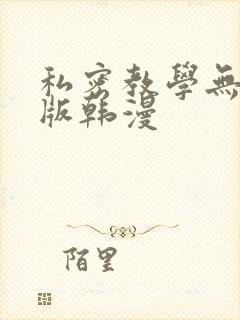 私密教學無
版韩漫
陌里